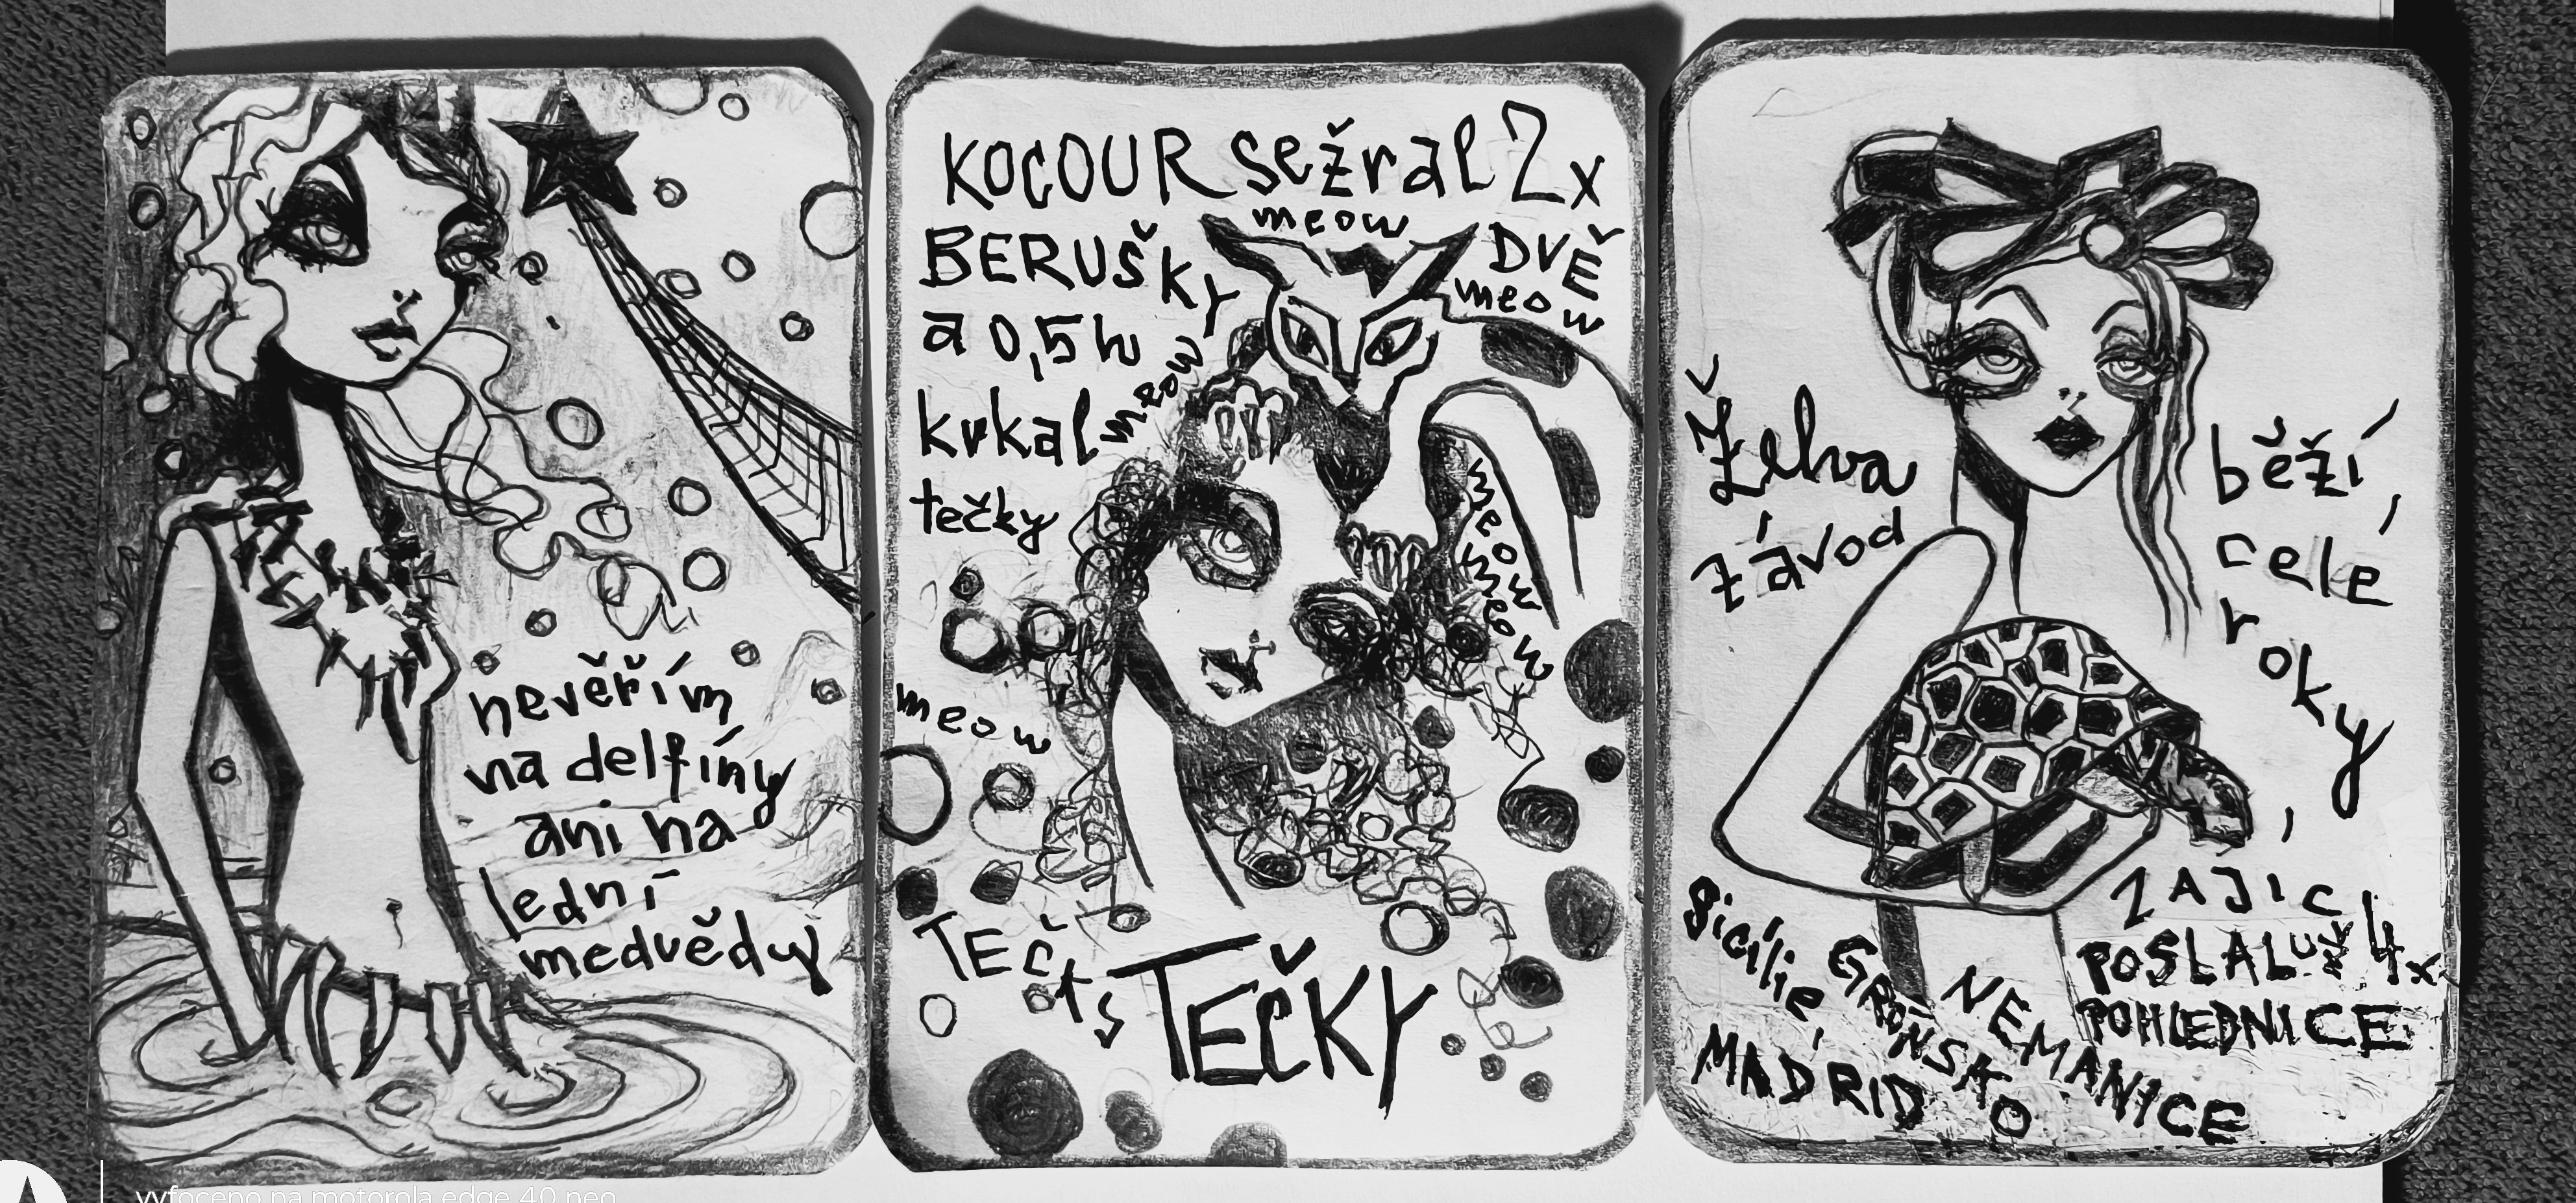 nevěřím
na delfíny
ani na
lední
medvědy
KOCOUR sežral 2x
meow
BERUŠKY
DVĚ
meow
a 0,5h
meow
kvkal
tečky
meow
meow
meow
meow
TEČ
ts
TEČKY
Želva
závod
běží,
celé
roky
ZAJÍC
POSLAL UŽ 4x
POHLEDNICE
Sicílie,
GRÓNSKO
NEMANICE
MADRID
vyfoceno na motorola edge 40 neo